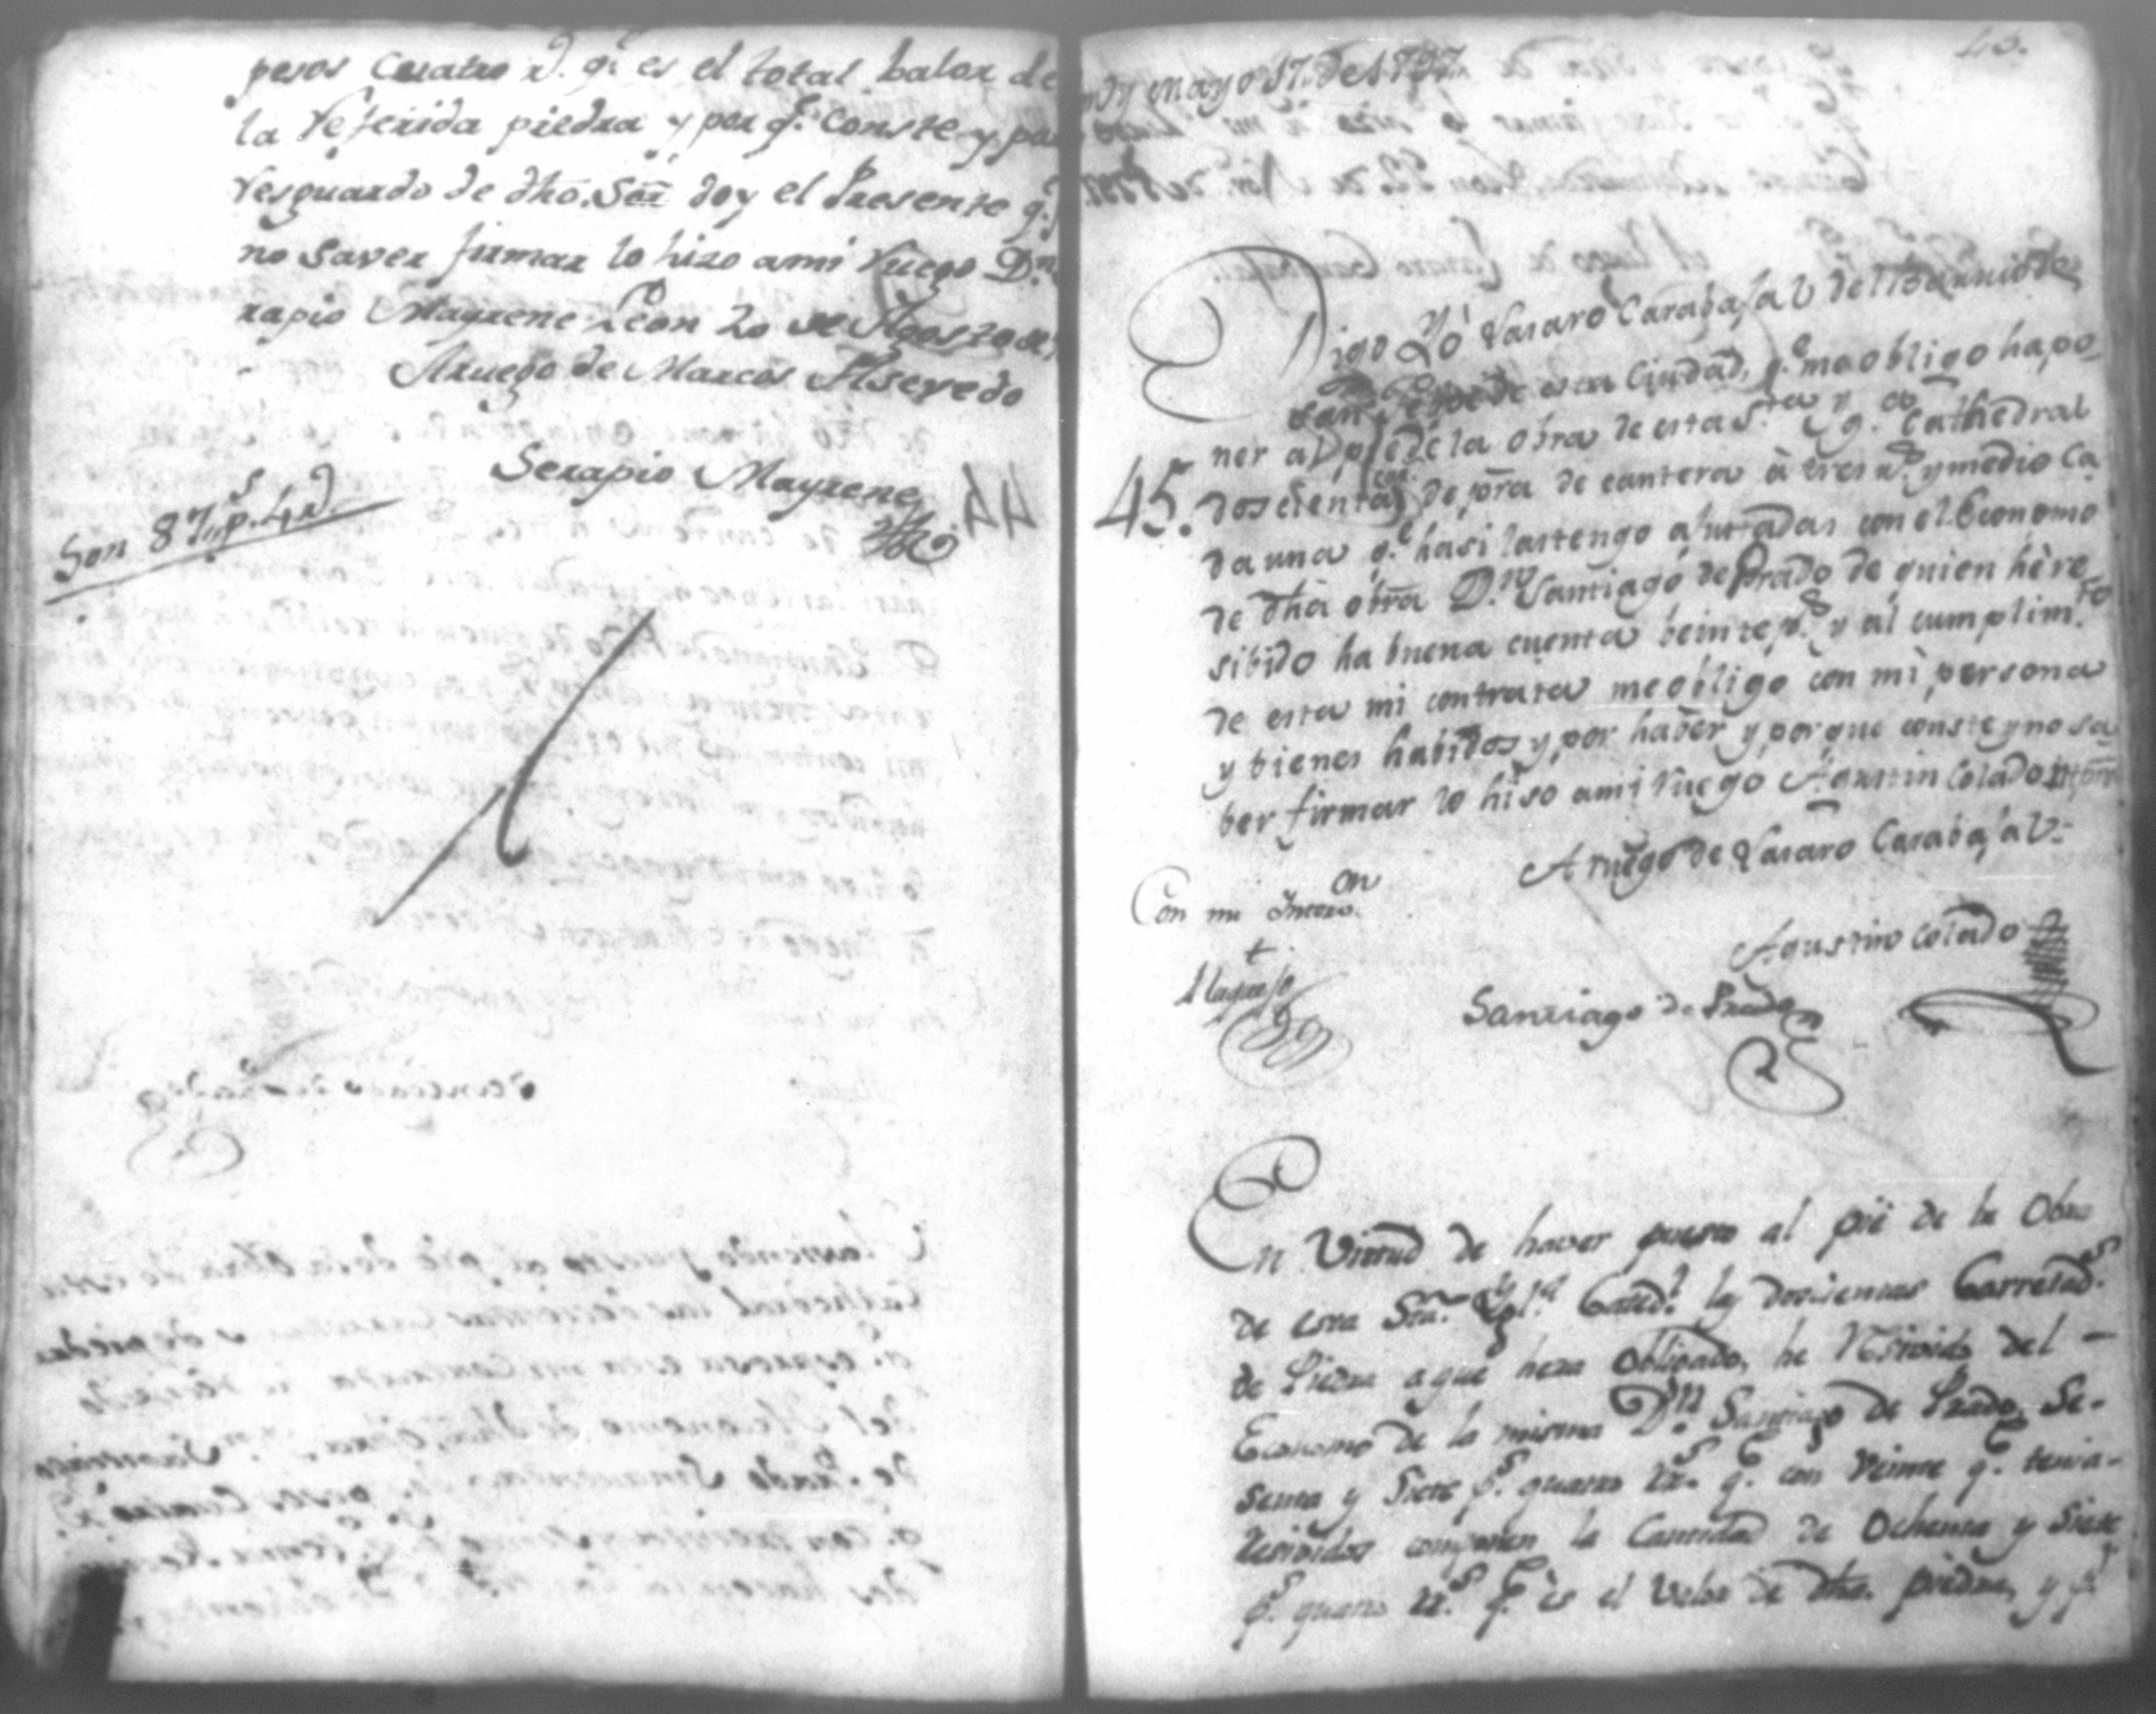 pesos Cuatro r.ͩ q.ͤ es el total balor de
la Referida piedra y por q.ͤ Conste y pa
resguardo de dho. Sor. doy el Presente q.ͤ
no saver firmar lo hizo ami Ruego D.ⁿ
rapio Mayrene Leon 20 de Agosto de
Aruego de Marcos Asevedo
Serapio Mayrene
Son 87 p.ˢ 4 r.ͩ
45.
y mayo 17. de 1797
Digo Yo Lasaro Carabajal del Barrio de
San de esta Ciudad, q.ͤ me obligo ha po
ner al pie de la obra de esta S.ᵗᵃ Yg.ᵃ Cathedral
45. doscientas de pra. de cantera à tres r.ˢ y medio ca
da una q.ͤ hasi las tengo ajustadas con el Economo
de dha obra D.ⁿ Santiago de Prado de quien hè re
sibido ha buena cuenta beinte p.ˢ y al cumplim.ᵗᵒ
de esta mi contrata me obligo con mi persona
y bienes habidos y por haber y por que conste y no sa
ber firmar lo hiso ami ruego Agustin Colado
A ruego de Lasaro Carabajal
Con mi Interv.ᵒⁿ
Agustin Colado
Santiago de Prado
En Virtud de haver puesto al pie de la Obra
de esta Sta. Ygl.ᵃ Cated.ˡ las doscientas Carretad.ˢ
de Piedra a que hera obligado, he Resivido del
Economo de la misma D.ⁿ Santiago de Prado Se-
senta y Siete p.ˢ quatro rr.ˢ q.ͤ con Veinte q.ͤ tenia
resividos componen la Cantidad de Ochenta y Siete
p.ˢ quatro rr.ˢ q.ͤ es el Valor de dha. piedra, y p.ʳ